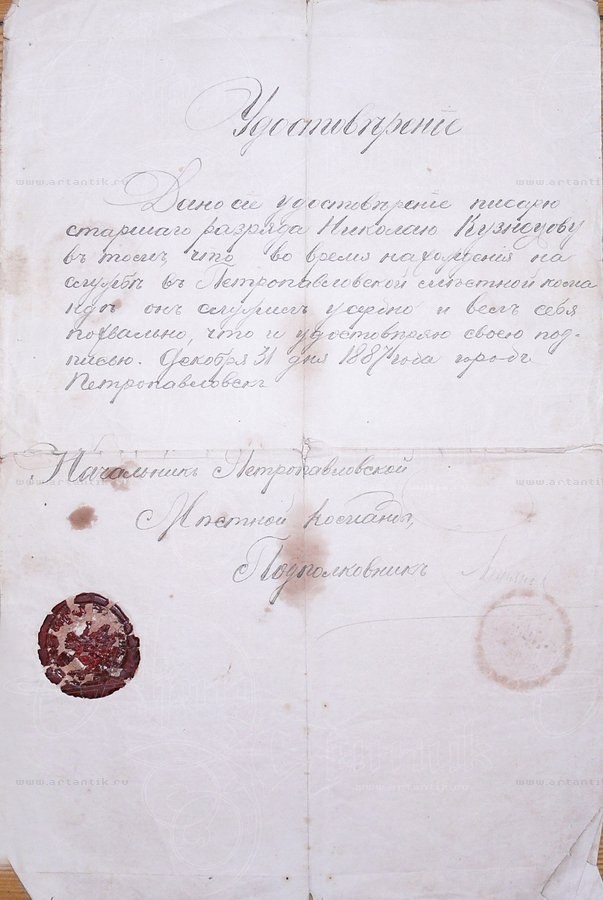 Удостовѣренiе
Дано сiе удостовѣренiе писарю
старшаго разряда Николаю Кузнецову
въ томъ, что во время нахожденiя на
службѣ въ Петропавловской мѣстной кома-
ндѣ онъ служилъ усердно и велъ себя
похвально, что и удостовѣряю своею под-
писью. Декабря 31 дня 1887 года городъ
Петропавловскъ
Начальникъ Петропавловской
Мѣстной Команды,
Подполковникъ
www.artantik.ru